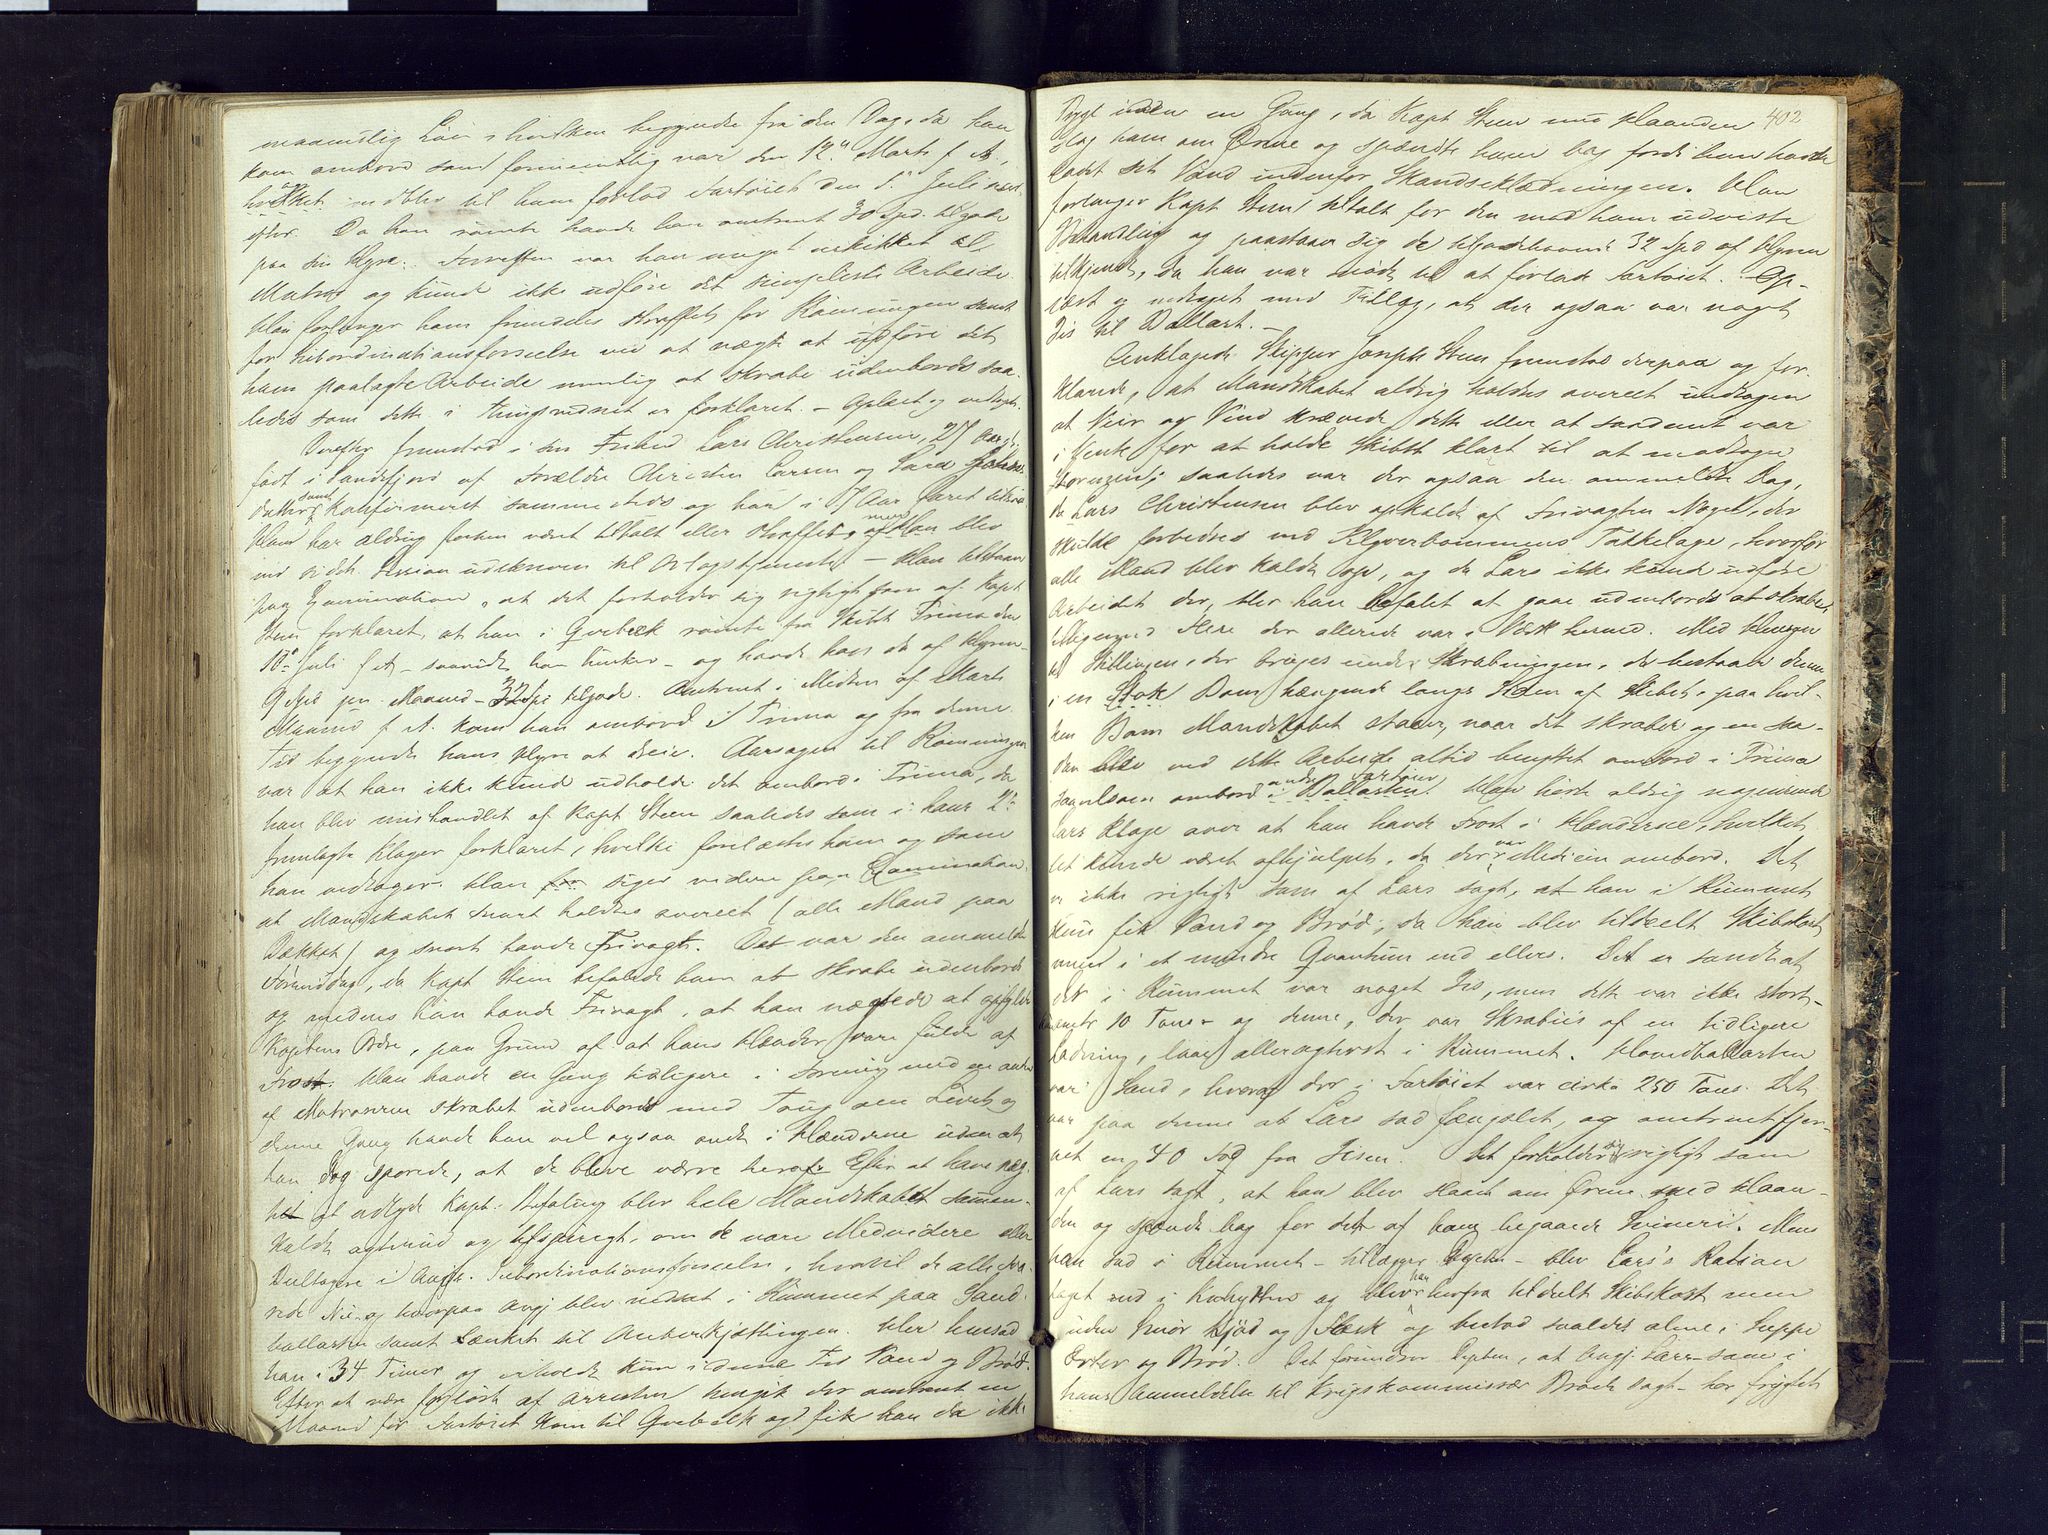 maanedlig Løn, hvilken begyndte fra den Dag, da han
kom ombord som formentlig var den 12te Marts f. A.,
hvilket vedblev til han forlod Fartøiet den 5te Juli næst
efter. Da han rømte havde han omtrent 30 Spd. tilgode
paa sin Hyre. Forresten var han meget uskikket til
Matros og kunde ikke udføre det simpleste Arbeide
Han forlanger ham fremdeles straffet for Rømningen samt
for Subordinationsforseelse ved at nægte at udføre det
ham paalagte Arbeide nemlig at skrabe udenbords saa-
ledes som dette i Tingsvidnet er forklaret. – Oplæst og vedtaget.
Derefter fremstod i sin Frihed Lars Christensen, 27 Aar gl.
født i Sandefjord af Forældre Christen Larsen og Sara
datter samt konfirmeret sammesteds og har i 7 Aar faret tilsøes
Han har aldrig forhen været tiltalt eller straffet, men Han blev
ved sidste Session udskreven til Orlogstjeneste – Han tilstaar
paa Examination, at det forholder sig rigtigt som af Kapt
Steen forklaret, at han i Qvebæk rømte fra Skibet Trima den
10de Juli f A – saavidt han husker – og havde han da af Hyren
9 Spd pr. Maaned – 32 Spd tilgode. Omtrent i Midten af Marts
Maaned f. A. kom han ombord i Trima og fra denne
Tid begyndte hans Hyre at dreie. Aarsagen til Rømningen
var at han ikke kunde udholde det ombord i Trima, da
han blev mishandlet af Kapt Steen saaledes som i hans 2de
fremlagte Klager forklaret, hvilke forelæstes ham og som
han vedtager. Han siger videre paa Examination,
at Mandskabet snart holdtes overeet (alle Mand paa
Dækket) og snart havde Frivagt. Det var den ommeldte
Formiddag, da Kapt Steen befalede ham at skrabe udenbords
og medens han havde Frivagt, at han nægtede at opfylde
Kaptens Ordre, paa Grund af at hans Hænder vare fulde af
Frost. Han havde en Gang tidligere i Forening med en anden
af Matroserne skrabet udenbords med Toug om Livet og
denne Gang havde han vel ogsaa ondt i Hænderne uden at
han dog sporede, at de bleve værre heraf. Efter at have næg-
tet at adlyde Kapt. Befaling blev hele Mandskabet sammen-
kaldt agterud og tilspurgt, om de vare Medvidere eller
Deltagere i Angj. Subordinationsforseelse, hvortil de alle sva-
rede Nei og hvorpaa Angj blev nedsat i Rummet paa Sand-
ballasten samt Lænket til Ankerkjættingen. Her hensad
han i 34 Timer og erholdt kun i denne Tid Vand og Brød.
Efter at være forløst af Arresten hengik der omtrent en
Maaned før Fartøiet kom til Qvebæk og fik han da ikke
402
Prygl uden en Gang, da Kapt Steen med Haanden
slog ham om Ørene og spændte ham bag fordi han havde
ladet sit Vand indenfor Skandseklædningen. Han
forlanger Kapt Steen tiltalt for den mod ham udviste
Behandling og paastaar sig de tilgodehavende 32 Spd af Hyren
tilkjendt, da han var nødt til at forlade Fartøiet. Op-
læst og vedtaget med Tillæg, at der ogsaa var noget
Iis til Ballast. –
Anklagede Skipper Joseph Steen fremstod derpaa og for-
klarede, at Mandskabet aldrig holdtes overeet undtagen
at Veir og Vind krævede dette eller at saadant var
i Vente for at holde Skibet klart til at modtage
Stormen; saaledes var der ogsaa den ommeldte Dag,
da Lars Christensen blev opkaldt af Frivagten Noget, der
skulde forbedres ved Klyverbommens Takkelage, hvorfor
alle Mand blev kaldt op, og da Lars ikke kunde udføre
Arbeidet der, blev han befalet at gaae udenbords at skrabe,
Flere der allerede var i Værk hermed. Med Hensyn
til Stillingen, der bruges under Skrabningen, da bestaar denne
i en Stok/Bom hængende langs Siden af Skibet, paa hvil-
ken Bom Mandskabet staaer, naar det skraber og en saa-
dan blev ved dette Arbeide altid benyttet ombord i Trima
saavelsom ombord i andre Fartøier. Han hørte aldrig nogensinde
Lars klage over at han havde Frost i Hænderne, hvilket
let kunde været afhjulpet, da der var Medicin ombord. Det
er ikke rigtigt som af Lars sagt, at han i Rummet
kun fik Vand og Brød, da han blev tildeelt Skibskost
men i et mindre Qvantum end ellers. Det er sandt at
der i Rummet var noget Iis, men dette var ikke stort –
omtr 10 Tons – og denne, der var Skrabiis af en tidligere
Ladning, laae alleragterst i Rummet. Hovedballasten
var Sand, hvoraf der i Fartøiet var cirka 250 Tons. Det
var paa denne at Lars sad fængslet, og omtrent fjer-
net en 40 Fod fra Iisen. Det forholder sig rigtigt som
af Lars sagt, at han blev slaaet om Ørene med Haan-
den og spændt bag for det af ham begaaede Svineri. Mens
han sad i Rummet – tillægger Depten – blev Lars's Ration
taget ind i Kahytten og blev han herfra tildelt Skibskost men
uden Smør Kjød og Flesk og bestod saaledes alene i Suppe
Erter og Brød. Det forundrer Depten, at Angj. Lars – som i
hans Anmeldelse til Krigskommissær Brock sagt – har frygtet